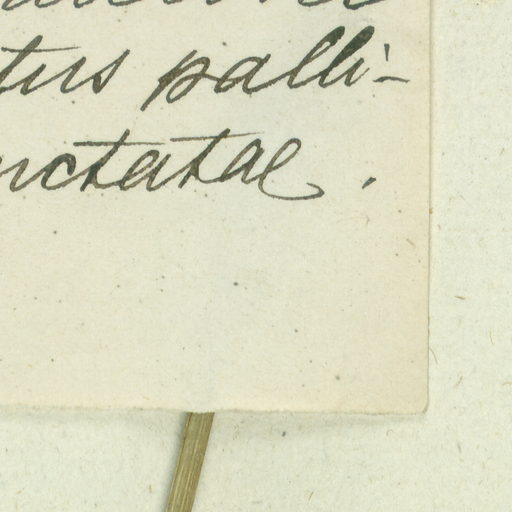 tus palli-
nctatae.